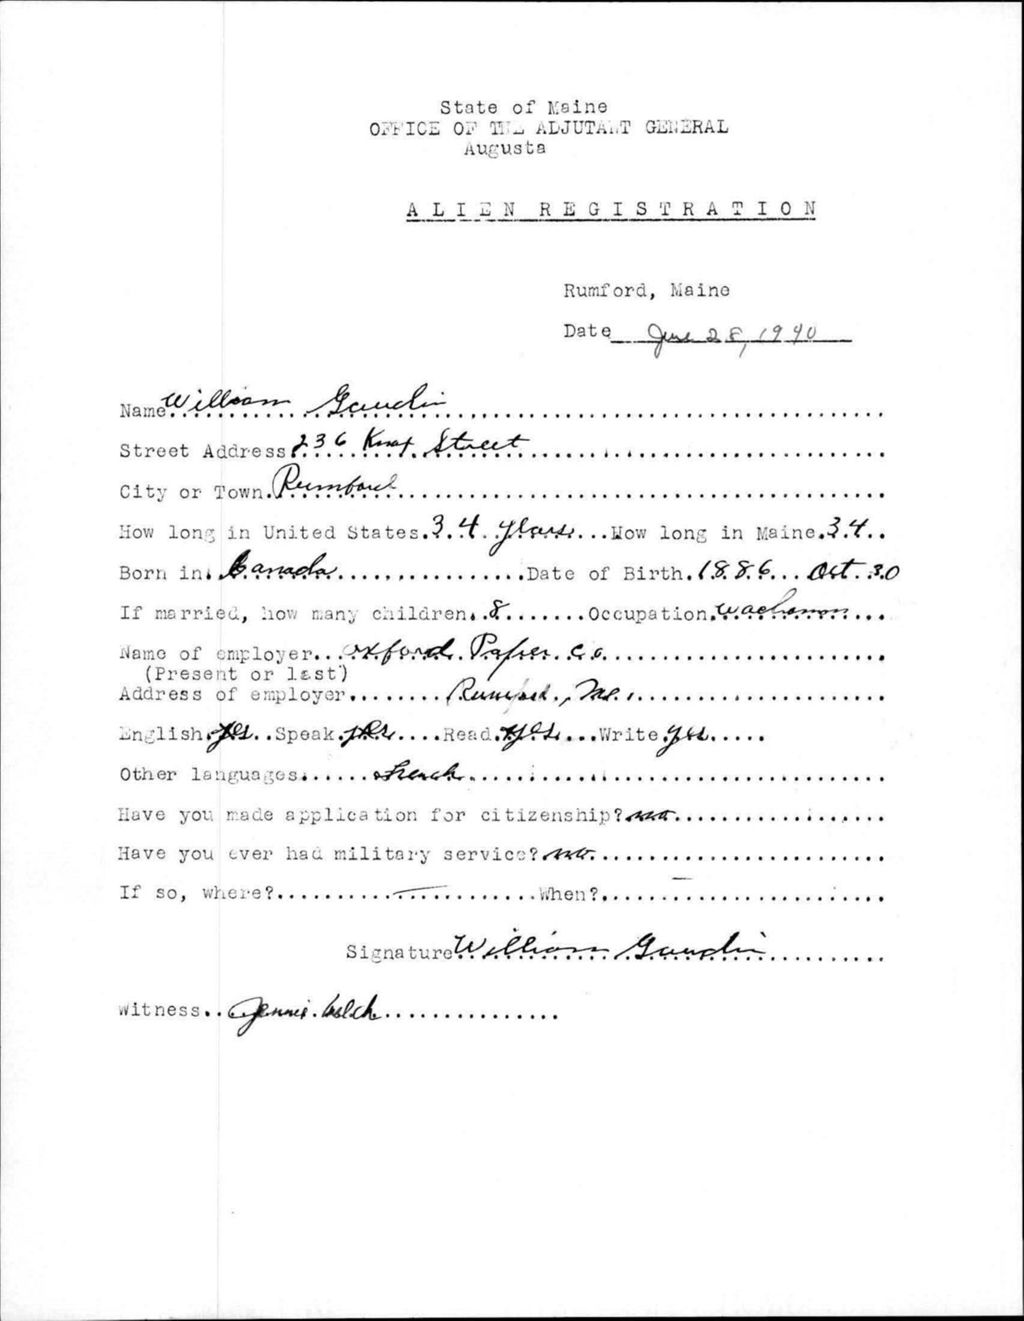 State of Maine
OFFICE OF THE ADJUTANT GENERAL
Augusta
ALIEN REGISTRATION
Rumford, Maine
Date June 28, 1940
Name William Gaudin
Street Address 236 Knox Street
City or Town Rumford
How long in United States 34 years How long in Maine 34
Born in Canada Date of Birth 1886 Oct 30
If married, how many children 8 Occupation
Name of employer Oxford Paper Co
(Present or last)
Address of employer Rumford, Me.
English yes Speak yes Read yes Write yes
Other languages French
Have you made application for citizenship? no
Have you ever had military service? no
If so, where? — When? —
Signature William Gaudin
Witness Jennie Welch